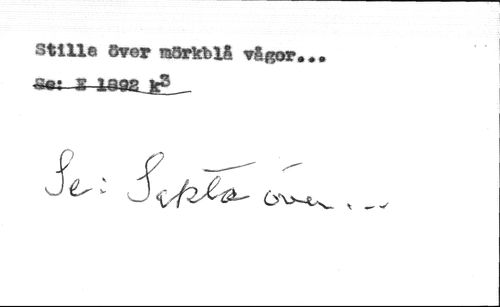 Stilla över mörkblå vågor...
Se: E 1892 k3
Se: Sakta över...